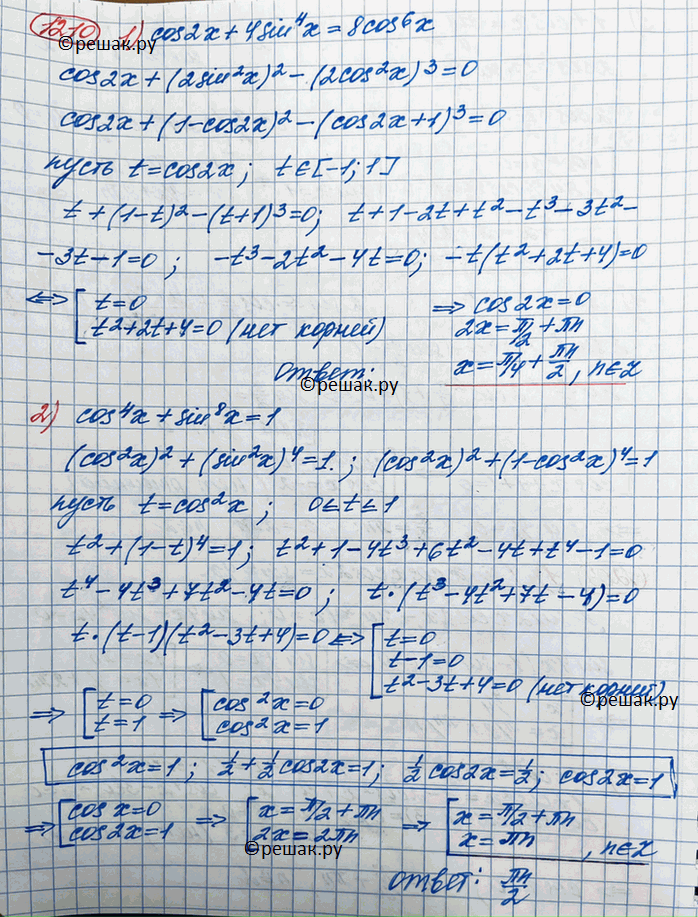 1210 1) cos2x + 4sin⁴x = 8cos⁶x
©решак.ру
cos2x + (2sin²x)² - (2cos²x)³ = 0
cos2x + (1-cos2x)² - (cos2x+1)³ = 0
пусть t = cos2x ; t ∈ [-1; 1]
t + (1-t)² - (t+1)³ = 0; t + 1 - 2t + t² - t³ - 3t² -
- 3t - 1 = 0 ; -t³ - 2t² - 4t = 0; -t(t² + 2t + 4) = 0
<=> [ t = 0 => cos2x = 0
t² + 2t + 4 = 0 (нет корней) 2x = π/2 + πn
ответ: x = π/4 + πn/2, n ∈ Z
©решак.ру
2) cos⁴x + sin⁸x = 1
(cos²x)² + (sin²x)⁴ = 1. ; (cos²x)² + (1-cos²x)⁴ = 1
пусть t = cos²x ; 0 ≤ t ≤ 1
t² + (1-t)⁴ = 1; t² + 1 - 4t³ + 6t² - 4t + t⁴ - 1 = 0
t⁴ - 4t³ + 7t² - 4t = 0 ; t·(t³ - 4t² + 7t - 4) = 0
t·(t-1)(t² - 3t + 4) = 0 <=> [ t = 0
t - 1 = 0
t² - 3t + 4 = 0 (нет корней)
©решак.ру
=> [ t = 0 => [ cos²x = 0
t = 1 cos²x = 1
cos²x = 1 ; 1/2 + 1/2 cos2x = 1; 1/2 cos2x = 1/2; cos2x = 1
=> [ cos x = 0 => [ x = π/2 + πn => [ x = π/2 + πn
cos2x = 1 2x = 2πn x = πn , n ∈ Z
©решак.ру
ответ: πn/2